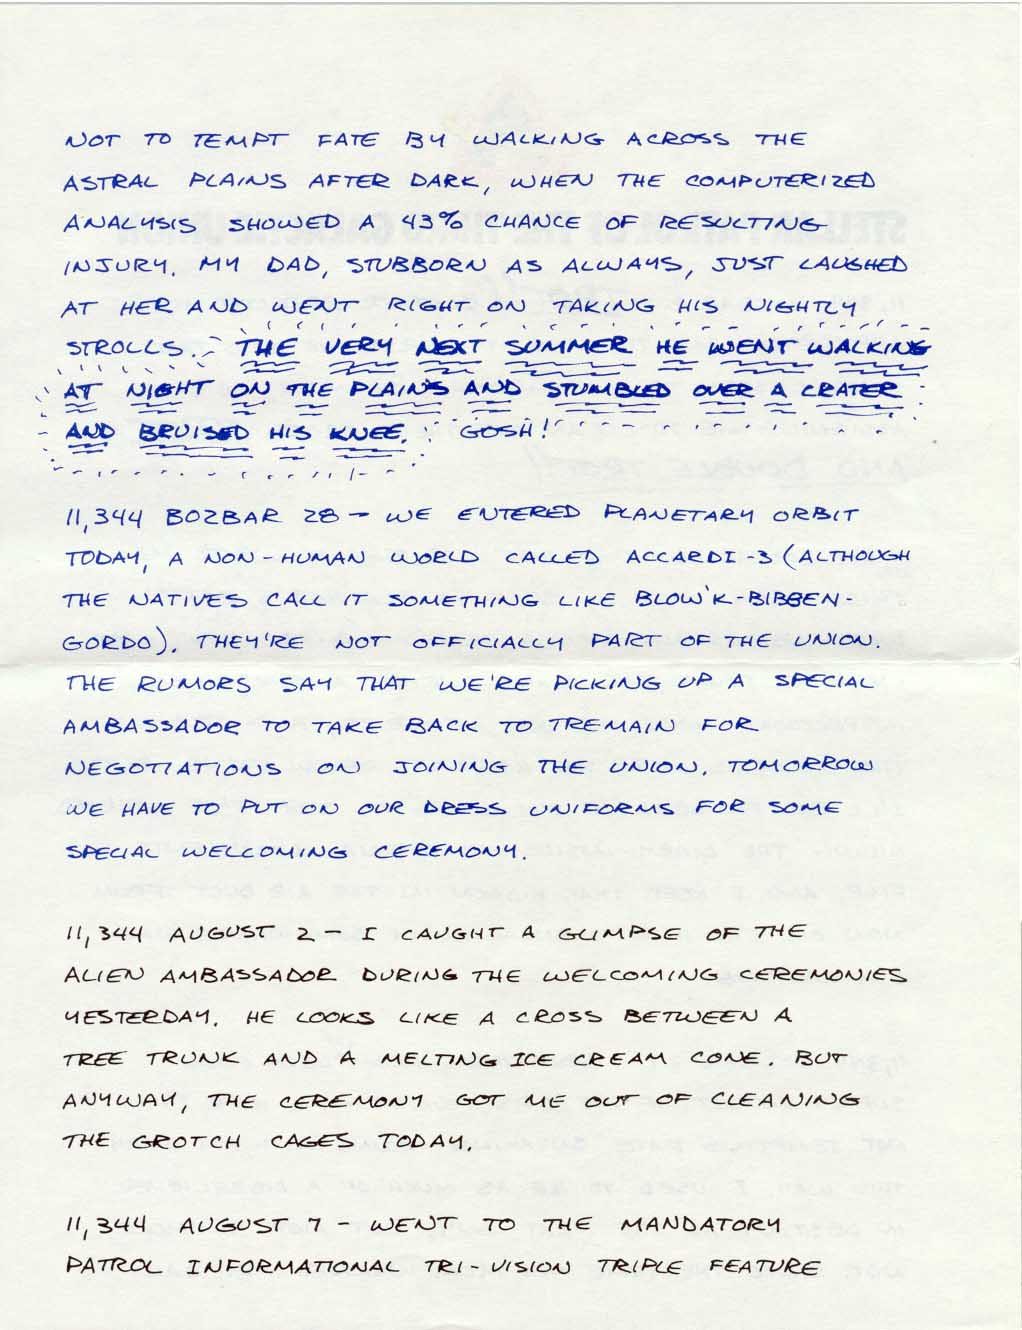 NOT TO TEMPT FATE BY WALKING ACROSS THE
ASTRAL PLAINS AFTER DARK, WHEN THE COMPUTERIZED
ANALYSIS SHOWED A 43% CHANCE OF RESULTING
INJURY. MY DAD, STUBBORN AS ALWAYS, JUST LAUGHED
AT HER AND WENT RIGHT ON TAKING HIS NIGHTLY
STROLLS. THE VERY NEXT SUMMER HE WENT WALKING
AT NIGHT ON THE PLAINS AND STUMBLED OVER A CRATER
AND BRUISED HIS KNEE. GOSH!
11,344 BOZBAR 28 - WE ENTERED PLANETARY ORBIT
TODAY, A NON-HUMAN WORLD CALLED ACCARDI-3 (ALTHOUGH
THE NATIVES CALL IT SOMETHING LIKE BLOW'K-BIBBEN-
GORDO). THEY'RE NOT OFFICIALLY PART OF THE UNION.
THE RUMORS SAY THAT WE'RE PICKING UP A SPECIAL
AMBASSADOR TO TAKE BACK TO TREMAIN FOR
NEGOTIATIONS ON JOINING THE UNION. TOMORROW
WE HAVE TO PUT ON OUR DRESS UNIFORMS FOR SOME
SPECIAL WELCOMING CEREMONY.
11,344 AUGUST 2 - I CAUGHT A GLIMPSE OF THE
ALIEN AMBASSADOR DURING THE WELCOMING CEREMONIES
YESTERDAY. HE LOOKS LIKE A CROSS BETWEEN A
TREE TRUNK AND A MELTING ICE CREAM CONE. BUT
ANYWAY, THE CEREMONY GOT ME OUT OF CLEANING
THE GROTCH CAGES TODAY.
11,344 AUGUST 7 - WENT TO THE MANDATORY
PATROL INFORMATIONAL TRI-VISION TRIPLE FEATURE